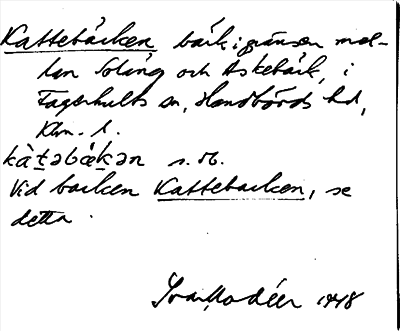 Kattebäcken bäck i gränsen mel-
lan Soläng och Askebäck, i
Fagerhults sn, Handbörds hd,
Klm. l.
kàt̲əbǽk̲ən s. M.
Vid backen Kattebacken, se
detta.
Ivar Modéer 1948